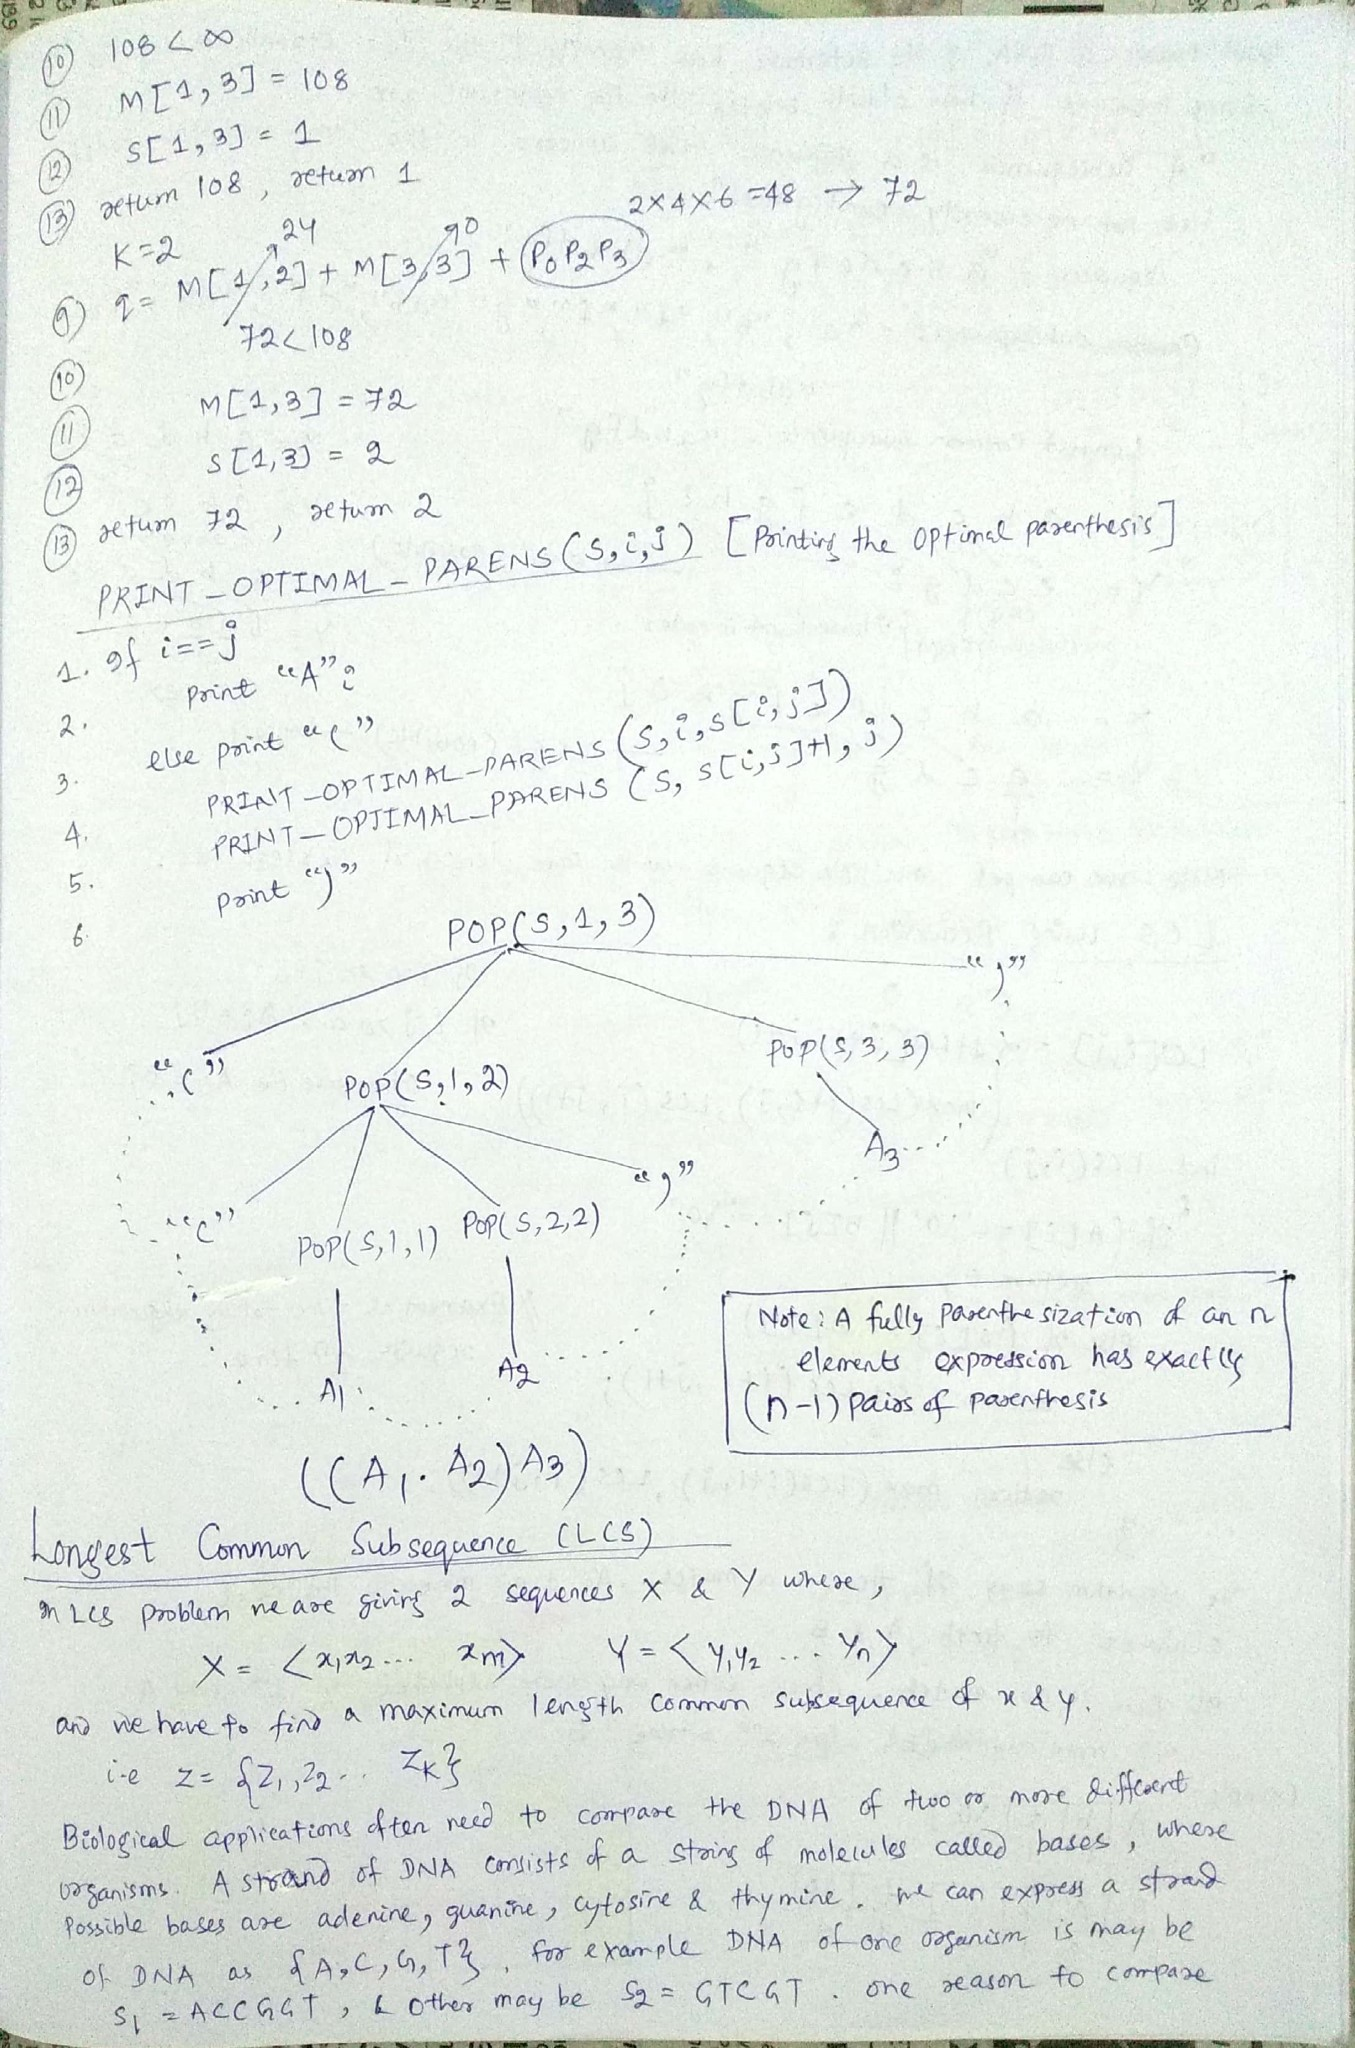 (10) 108 < ∞
(11) M[1,3] = 108
(12) S[1,3] = 1
(13) return 108 , return 1
K=2
2×4×6 =48 → 72
24 0
(9) q = M[1,2] + M[3,3] + (P0 P2 P3)
72<108
(10)
(11) M[1,3] = 72
(12) S[1,3] = 2
(13) return 72 , return 2
PRINT_OPTIMAL_PARENS(S,i,j) [Printing the optimal parenthesis]
1. If i==j
2. print "A"i
3. else print "("
4. PRINT_OPTIMAL_PARENS (S,i,S[i,j])
5. PRINT_OPTIMAL_PARENS (S, S[i,j]+1, j)
6. print ")"
POP(S,1,3)
"(" POP(S,1,2) POP(S,3,3) ")"
A3
"(" POP(S,1,1) POP(S,2,2) ")"
A1 A2
Note: A fully parenthesization of an n
elements expression has exactly
(n-1) pairs of parenthesis
((A1.A2)A3)
Longest Common Subsequence (LCS)
In LCS problem we are giving 2 sequences X & Y where,
X = <x1x2 ... xm> Y = <y1y2 ... yn>
and we have to find a maximum length common subsequence of x & y.
i.e z = {z1,z2 .. zK}
Biological applications often need to compare the DNA of two or more different
organisms. A strand of DNA consists of a string of molecules called bases, where
Possible bases are adenine, guanine, cytosine & thymine. we can express a strand
of DNA as {A,C,G,T}, for example DNA of one organism is may be
S1 = ACCGGT, & other may be S2 = GTCGT. one reason to compare